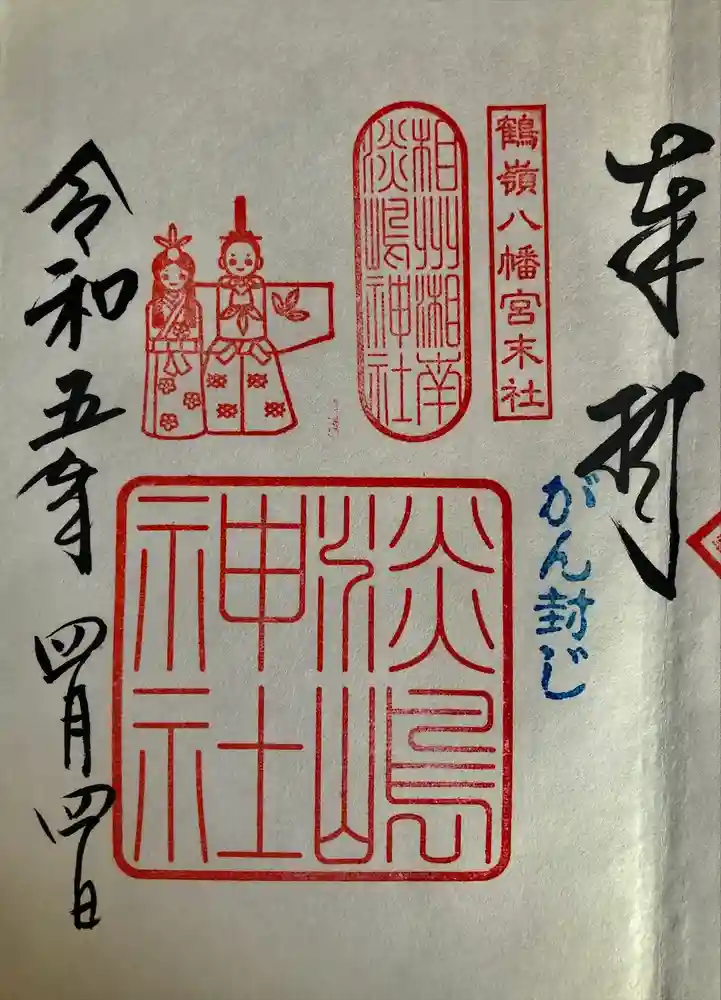 奉拝
鶴嶺八幡宮末社
がん封じ
相州湘南
淡嶋神社
淡嶋
神社
令和五年 四月四日